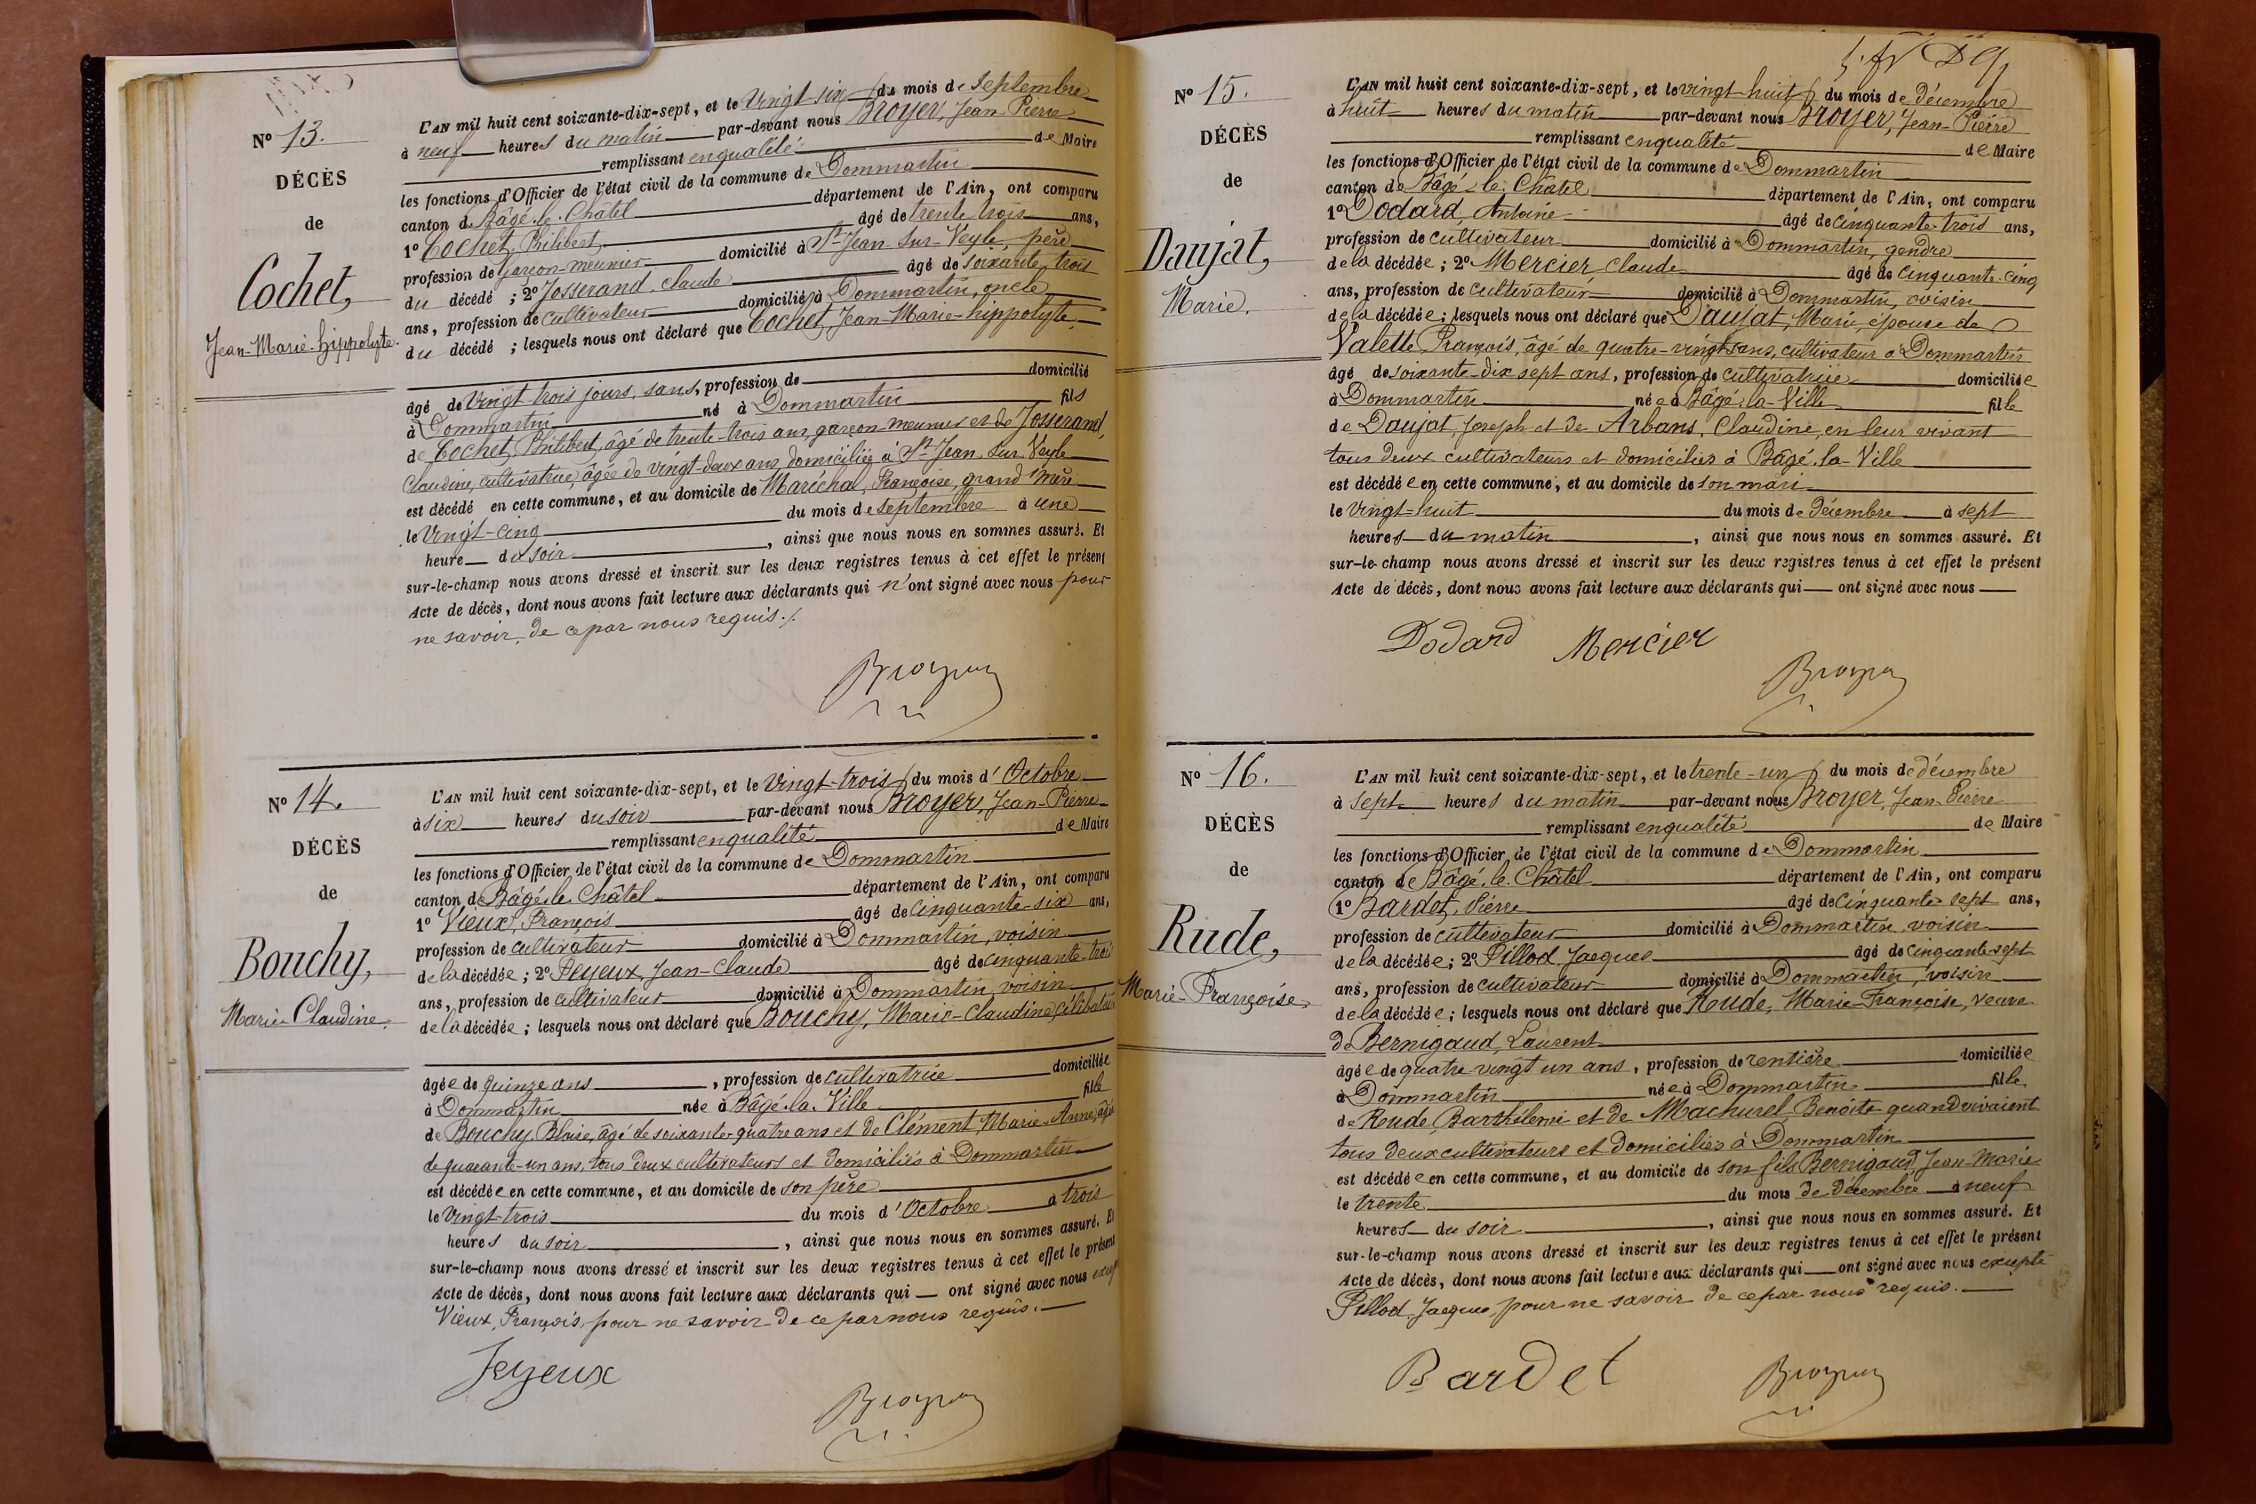 Nº 13.
DÉCÈS
de
Cochet,
Jean-Marie-hippolyte.
L'AN mil huit cent soixante-dix-sept, et le Vingt-six du mois de Septembre
à neuf heures du matin par-devant nous Broyer, Jean Pierre
remplissant en qualité de Maire
les fonctions d'Officier de l'état civil de la commune de Dommartin
canton de Bâgé-le-Châtel département de l'Ain, ont comparu
1º Cochet, Philibert, âgé de trente trois ans,
profession de garçon-meunier domicilié à St Jean-sur-Veyle, père
du décédé ; 2º Josserand, Claude âgé de soixante trois
ans, profession de cultivateur domicilié à Dommartin, oncle
du décédé ; lesquels nous ont déclaré que Cochet, Jean-Marie-hippolyte.
âgé de Vingt trois jours, sans, profession de domicilié
à Dommartin né à Dommartin fils
de Cochet, Philibert, âgé de trente-trois ans, garçon meunier et de Josserand,
Claudine, cultivatrice, âgée de vingt-deux ans, domiciliés à St Jean-sur-Veyle
est décédé en cette commune, et au domicile de Maréchal, Françoise, grand mère
le Vingt-cinq du mois de septembre à une
heure du soir , ainsi que nous nous en sommes assuré. Et
sur-le-champ nous avons dressé et inscrit sur les deux registres tenus à cet effet le présent
Acte de décès, dont nous avons fait lecture aux déclarants qui n'ont signé avec nous pour
ne savoir, de ce par nous requis./.
Broyer
Nº 14.
DÉCÈS
de
Bouchy,
Marie-Claudine.
L'AN mil huit cent soixante-dix-sept, et le Vingt-trois du mois d'Octobre
à six heures du soir par-devant nous Broyer, Jean-Pierre
remplissant en qualité de Maire
les fonctions d'Officier de l'état civil de la commune de Dommartin
canton de Bâgé-le-Châtel département de l'Ain, ont comparu
1º Vieux, François âgé de cinquante-six ans,
profession de cultivateur domicilié à Dommartin, voisin
de la décédée ; 2º Feyeux, Jean-Claude âgé de cinquante-trois
ans, profession de cultivateur domicilié à Dommartin, voisin
de la décédée ; lesquels nous ont déclaré que Bouchy, Marie-Claudine, célibataire
âgée de quinze ans , profession de cultivatrice domiciliée
à Dommartin née à Bâgé-la-Ville fille
de Bouchy, Blaise, âgé de soixante-quatre ans et de Clément, Marie-Anne, âgée
de quarante-un ans, tous deux cultivateurs et domiciliés à Dommartin
est décédée en cette commune, et au domicile de son père
le Vingt-trois du mois d'Octobre à trois
heures du soir , ainsi que nous nous en sommes assuré. Et
sur-le-champ nous avons dressé et inscrit sur les deux registres tenus à cet effet le présent
Acte de décès, dont nous avons fait lecture aux déclarants qui ont signé avec nous excepté
Vieux, François, pour ne savoir de ce par nous requis.
Feyeux
Broyer
Nº 15.
DÉCÈS
de
Daujat,
Marie.
L'AN mil huit cent soixante-dix-sept, et le vingt-huit du mois de Décembre
à huit heures du matin par-devant nous Broyer, Jean-Pierre
remplissant en qualité de Maire
les fonctions d'Officier de l'état civil de la commune de Dommartin
canton de Bâgé-le-Châtel département de l'Ain, ont comparu
1º Dodard, Antoine âgé de cinquante-trois ans,
profession de cultivateur domicilié à Dommartin, gendre
de la décédée ; 2º Mercier, Claude âgé de cinquante-cinq
ans, profession de cultivateur domicilié à Dommartin, voisin
de la décédée ; lesquels nous ont déclaré que Daujat, Marie, épouse de
Valette, François, âgé de quatre-vingts ans, cultivateur à Dommartin
âgé de soixante-dix sept ans, profession de cultivatrice domiciliée
à Dommartin née à Bâgé-la-Ville fille
de Daujat, Joseph et de Arbans, Claudine, en leur vivant
tous deux cultivateurs et domiciliés à Bâgé-la-Ville
est décédée en cette commune, et au domicile de son mari
le Vingt-huit du mois de Décembre à sept
heures du matin , ainsi que nous nous en sommes assuré. Et
sur-le-champ nous avons dressé et inscrit sur les deux registres tenus à cet effet le présent
Acte de décès, dont nous avons fait lecture aux déclarants qui ont signé avec nous
Dodard Mercier
Broyer
Nº 16.
DÉCÈS
de
Rude,
Marie-Françoise,
L'AN mil huit cent soixante-dix-sept, et le trente-un du mois de décembre
à sept heures du matin par-devant nous Broyer, Jean-Pierre
remplissant en qualité de Maire
les fonctions d'Officier de l'état civil de la commune de Dommartin
canton de Bâgé-le-Châtel département de l'Ain, ont comparu
1º Bardet, Pierre âgé de Cinquante-sept ans,
profession de cultivateur domicilié à Dommartin, voisin
de la décédée ; 2º Pillod, Jacques âgé de cinquante-sept
ans, profession de cultivateur domicilié à Dommartin, voisin
de la décédée ; lesquels nous ont déclaré que Rude, Marie-Françoise, veuve
de Bernigaud, Laurent
âgée de quatre vingt un ans, profession de rentière domiciliée
à Dommartin née à Dommartin fille
de Rude, Barthélemi et de Machurel, Benoite quand vivaient
tous deux cultivateurs et domiciliés à Dommartin
est décédée en cette commune, et au domicile de son fils Bernigaud, Jean-Marie
le trente du mois de décembre à neuf
heures du soir , ainsi que nous nous en sommes assuré. Et
sur-le-champ nous avons dressé et inscrit sur les deux registres tenus à cet effet le présent
Acte de décès, dont nous avons fait lecture aux déclarants qui ont signé avec nous excepté
Pillod, Jacques, pour ne savoir de ce par nous requis.
Bardet
Broyer